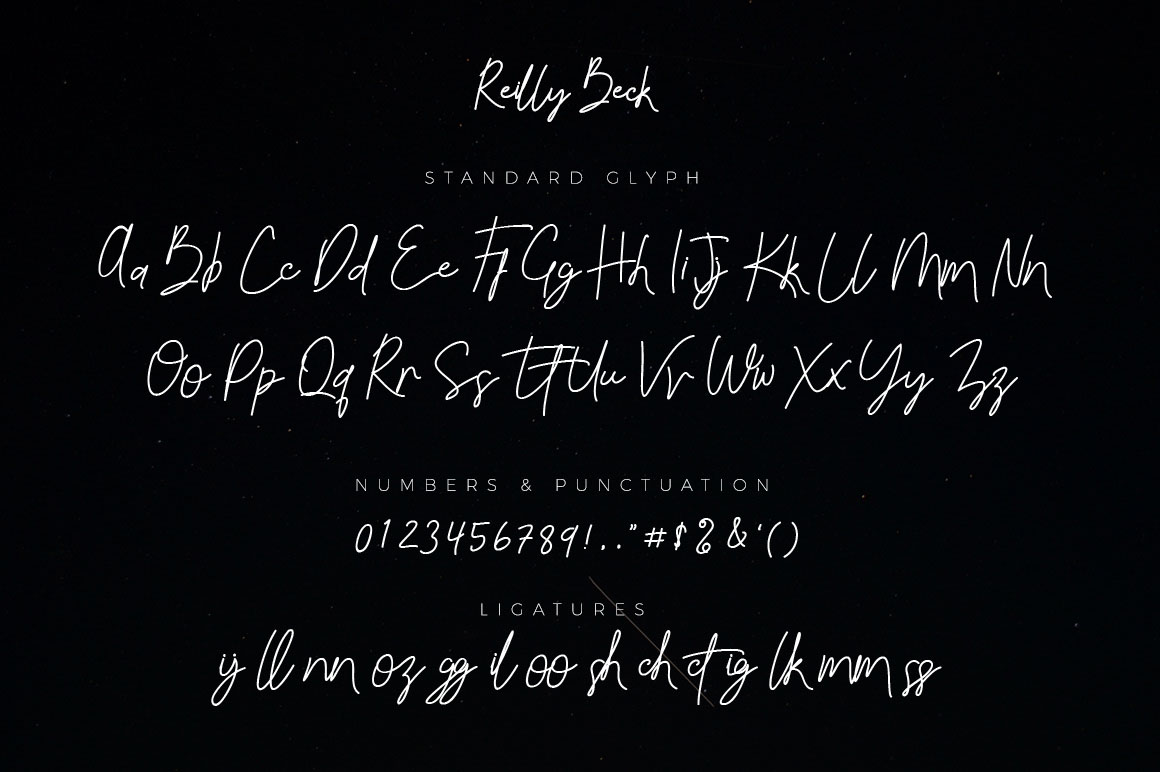 Reilly Beck
STANDARD GLYPH
Aa Bb Cc Dd Ee Ff Gg Hh Ii Jj Kk Ll Mm Nn
Oo Pp Qq Rr Ss Tt Uu Vv Ww Xx Yy Zz
NUMBERS & PUNCTUATION
0123456789!..”#$%&‘()
LIGATURES
ij ll nn oz gg il oo sh ch ct ig lk mm ss